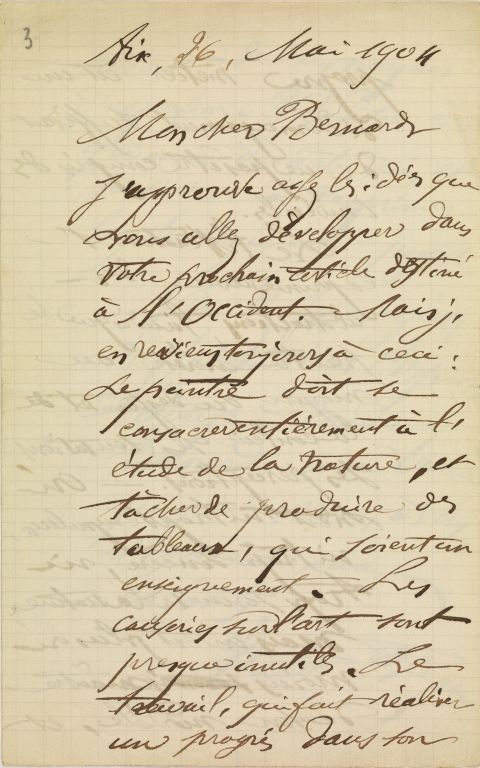 3
Aix, 26, Mai 1904
Mon cher Bernard
J'approuve assez les idées que
vous allez développer dans
votre prochain article destiné
à l'Occident. Mais j'
en reviens toujours à ceci :
Le peintre doit se
consacrer entièrement à l'
étude de la nature, et
tâcher de produire des
tableaux, qui soient un
enseignement. Les
causeries sur l'art sont
presque inutiles. Le
travail, qui fait réaliser
un progrès dans son